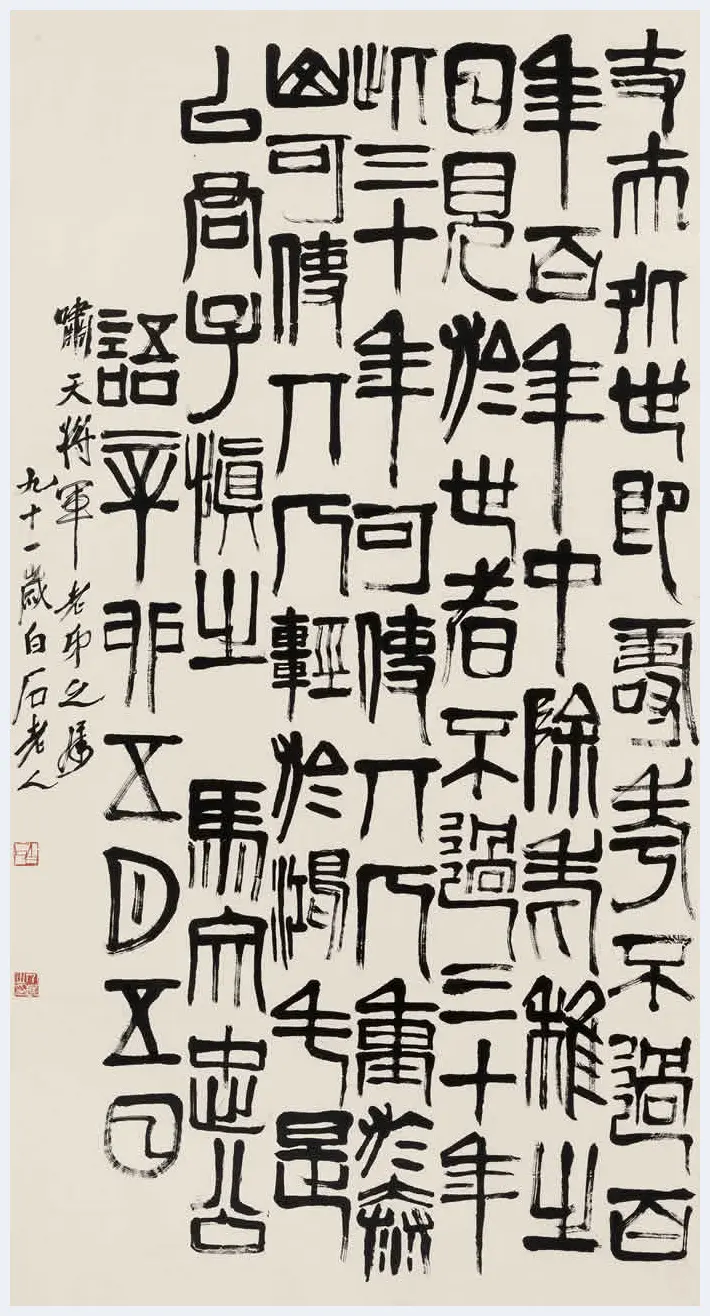 丈夫処世即壽考不過百
年百年中除老稚之
日見於世者不過三十年
此三十年可使丌人重於泰
山可使丌人輕於鴻毛是
以君子慎之馬文忠公
語辛卯五月五日
嘯天將軍老弟之屬
九十一歲白石老人